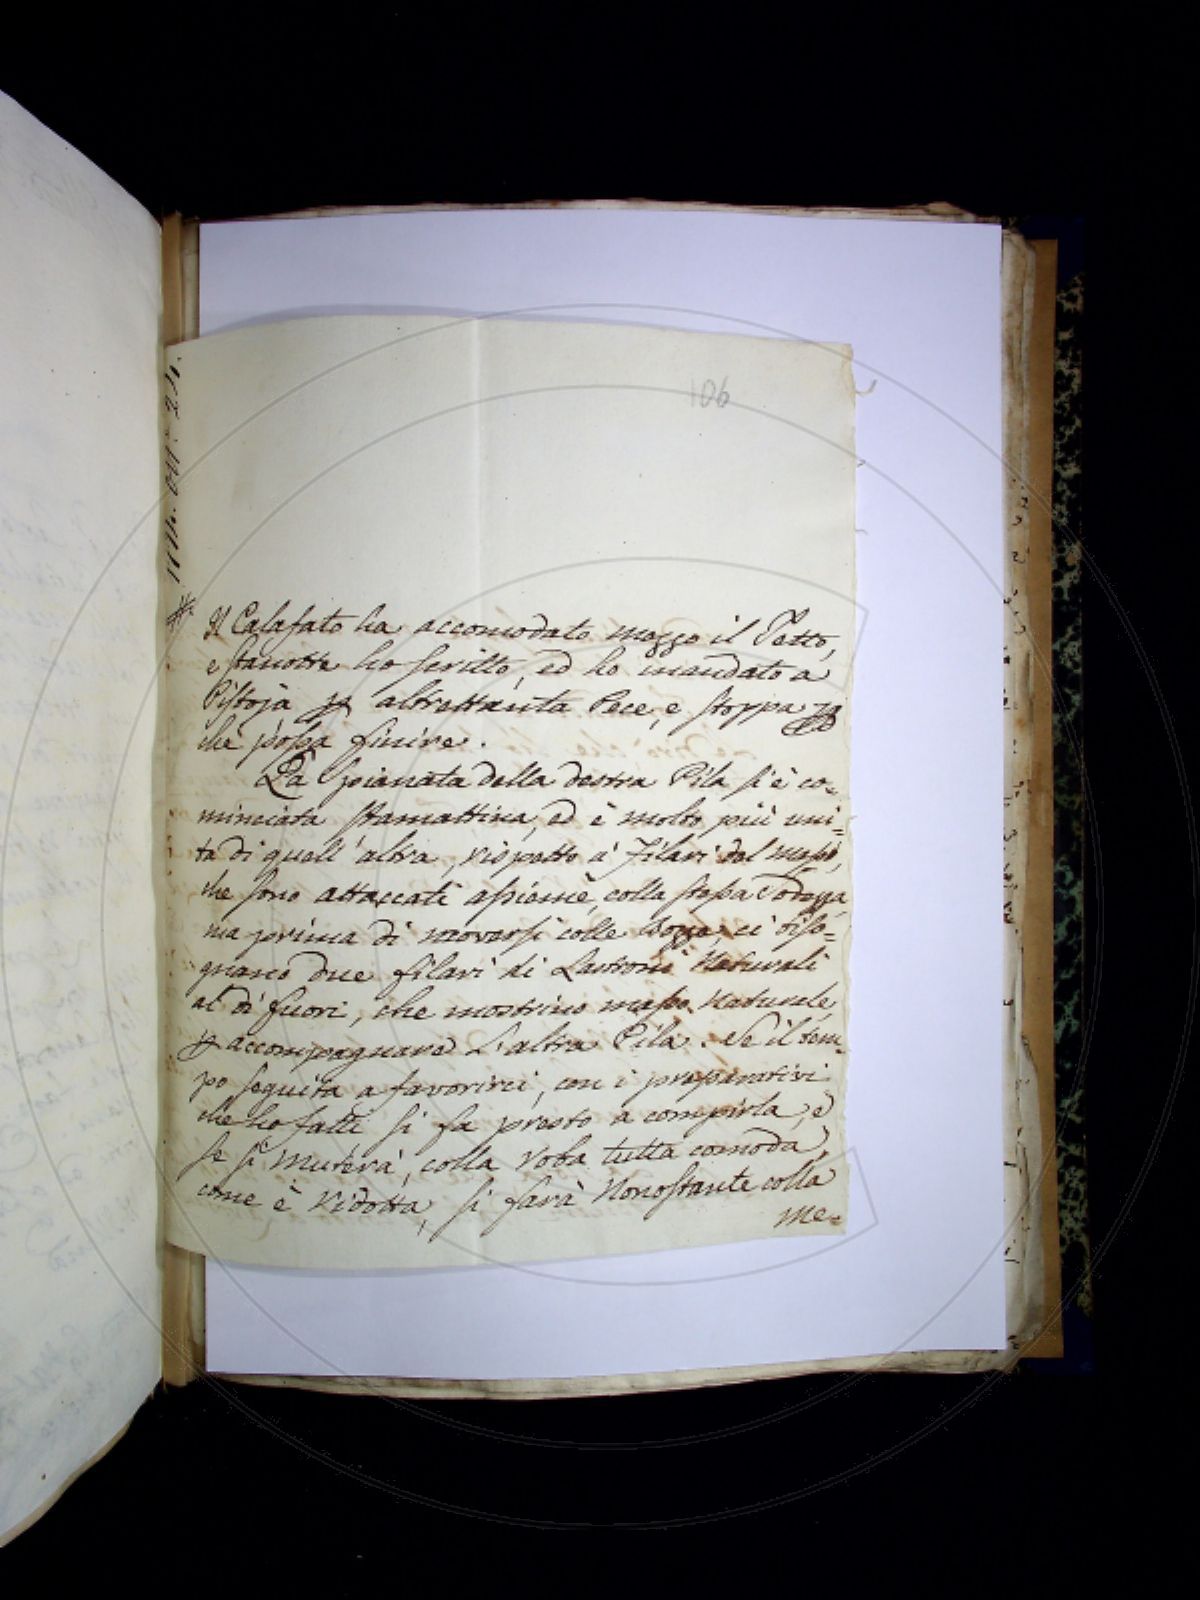 106
Il Calafato ha accomodato mezzo il Tetto,
e stanotte ho scritto, ed ho mandato a
Pistoja p altrettanta Pece, e stoppa
che possa finire.
La Spianata della destra Pila si è co=
minciata stamattina, ed è molto più uni=
ta di quell'altra, rispetto a' Filari del masso,
che sono attaccati assieme, colla stessa
ma prima di moversi colle Bozze, ci biso=
gnano due filari di Lastroni Naturali
al di fuori, che mostrino masso Naturale
p accompagnare L'altra Pila. Se il tem=
po seguita a favorirci, con i preparativi
che ho fatti si fa presto a compirla, e
se si muterà, colla roba tutta comoda,
come è ridotta, si farà Nonostante colla
me=